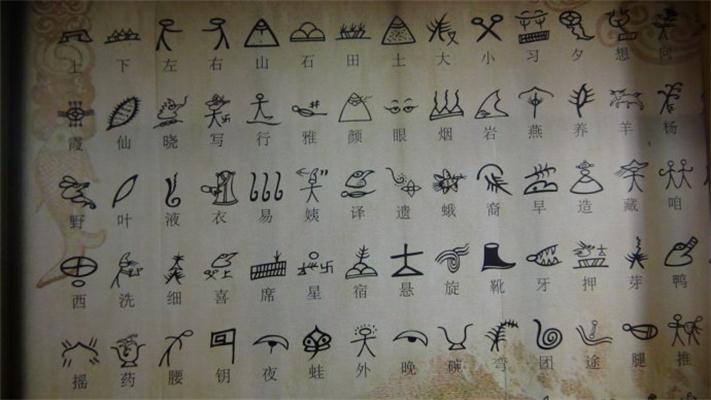 上 下 左 右 山 石 田 土 大 小 习 夕 想 向
霞 仙 晓 写 行 雅 颜 眼 烟 岩 燕 养 羊 杨
野 叶 液 衣 易 姨 译 遗 蛾 裔 早 造 藏 咱
西 洗 细 喜 席 星 宿 悬 旋 靴 牙 押 芽 鸭
摇 药 腰 钥 夜 蛙 外 晚 碗 弯 团 途 腿 推